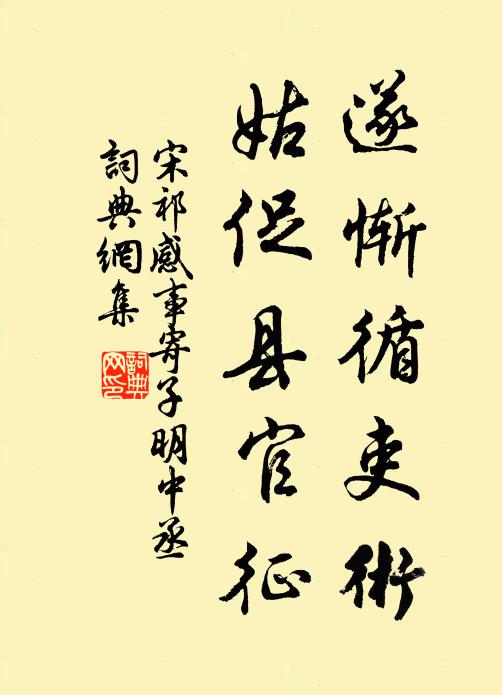 遂慚循吏術
姑促县官征
宋祁感事寄子明中丞
詞典網集
詞典网印